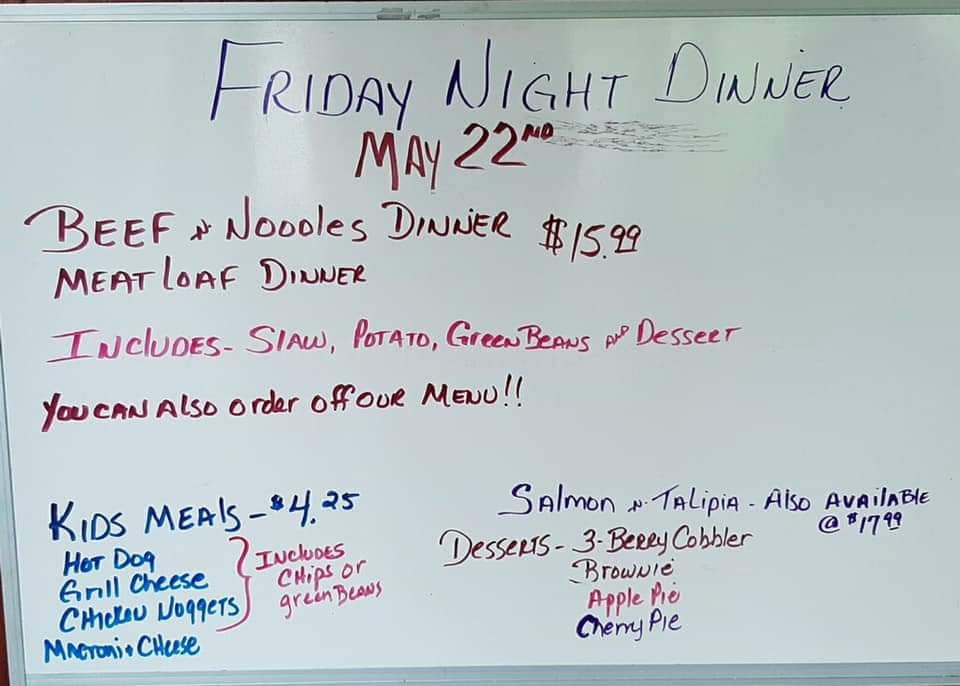 FRIDAY NIGHT DINNER
MAY 22ND
BEEF N NOODLES DINNER $15.99
MEATLOAF DINNER
INCLUDES- SLAW, POTATO, GREEN BEANS AND DESSERT
YOU CAN ALSO ORDER OFF OUR MENU!!
KIDS MEALS - $4.25
HOT DOG
Grill Cheese
CHICKEN NUGGETS
MACRONI & CHEESE
INCLUDES
CHIPS OR
green BEANS
SALMON N TALIPIA - ALSO AVAILABLE
@ $17.99
DESSERTS - 3-BERRY COBBLER
BROWNIE
Apple Pie
Cherry Pie